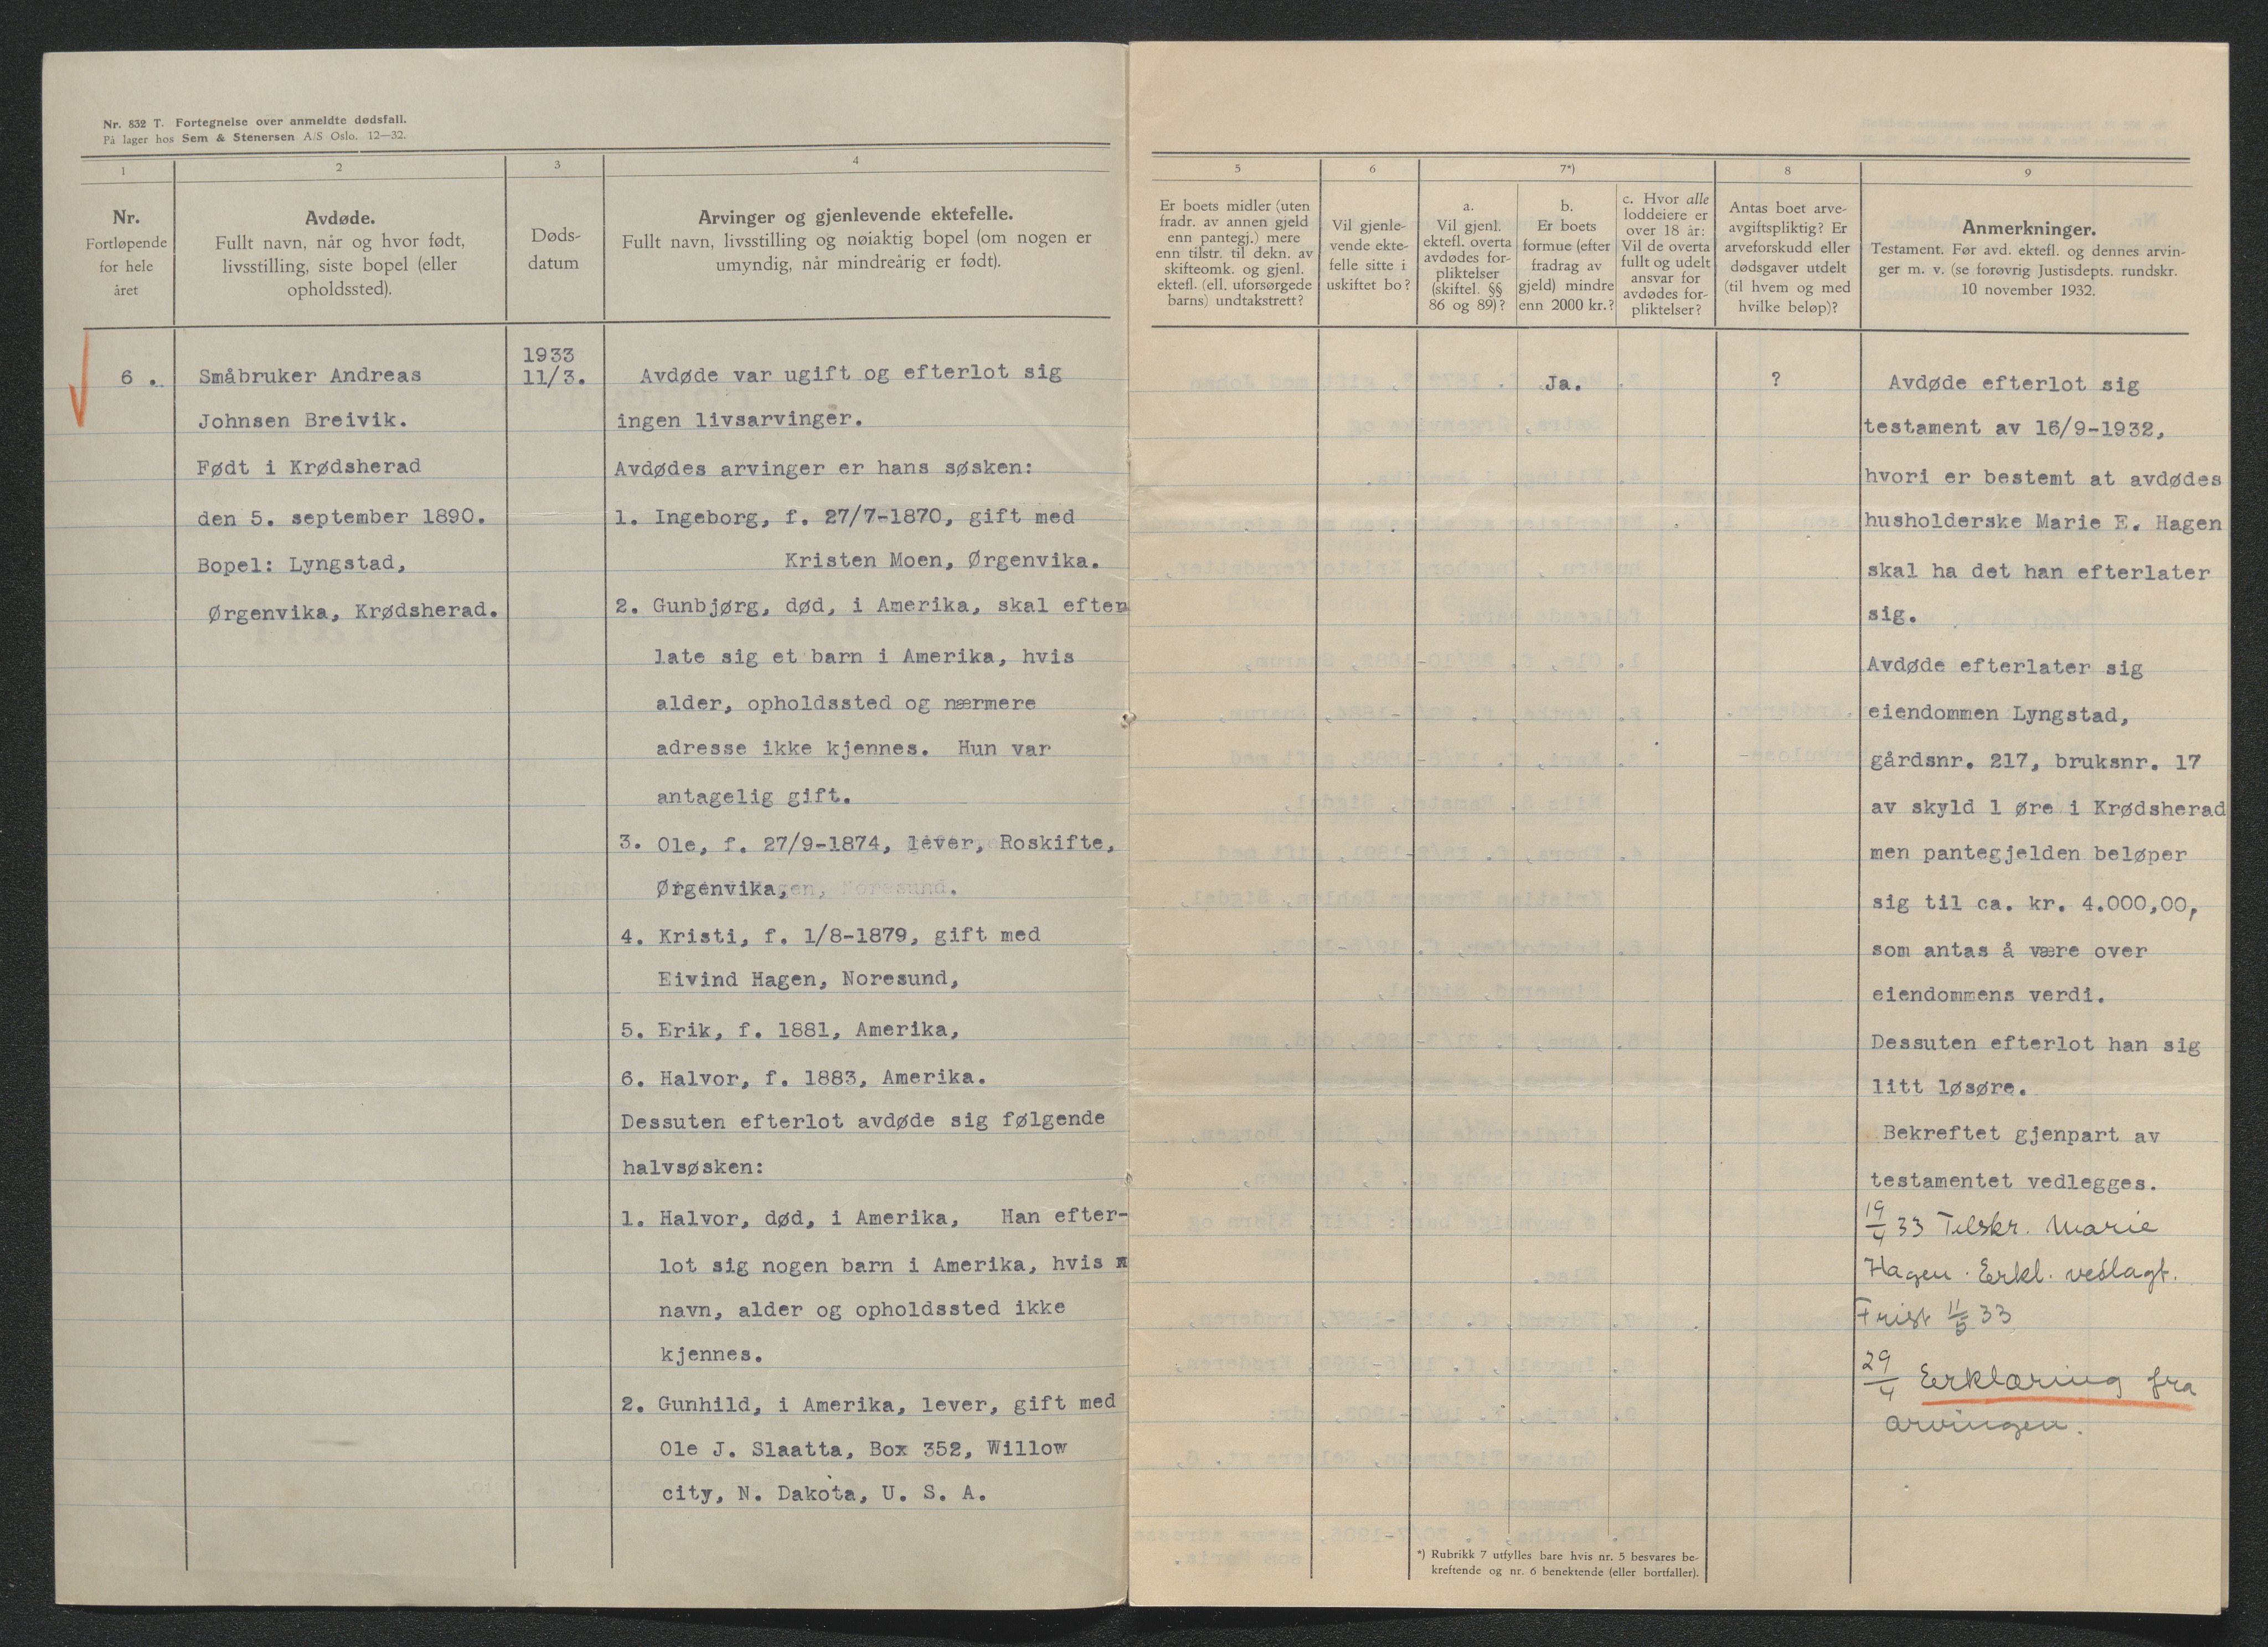 Nr. 832 T. Fortegnelse over anmeldte dødsfall.
På lager hos Sem & Stenersen A/S Oslo. 12—32.
1
Nr.
Fortløpende
for hele
året
2
Avdøde.
Fullt navn, når og hvor født,
livsstilling, siste bopel (eller
opholdssted).
3
Døds-
datum
4
Arvinger og gjenlevende ektefelle.
Fullt navn, livsstilling og nøiaktig bopel (om nogen er
umyndig, når mindreårig er født).
6 .
Småbruker Andreas
Johnsen Breivik.
Født i Krødsherad
den 5. september 1890.
Bopel: Lyngstad,
Ørgenvika, Krødsherad.
1933
11/3.
Avdøde var ugift og efterlot sig
ingen livsarvinger.
Avdødes arvinger er hans søsken:
1. Ingeborg, f. 27/7-1870, gift med
Kristen Moen, Ørgenvika.
2. Gunbjørg, død, i Amerika, skal efter
late sig et barn i Amerika, hvis
alder, opholdssted og nærmere
adresse ikke kjennes. Hun var
antagelig gift.
3. Ole, f. 27/9-1874, lever, Roskifte,
Ørgenvika,
4. Kristi, f. 1/8-1879, gift med
Eivind Hagen, Noresund,
5. Erik, f. 1881, Amerika,
6. Halvor, f. 1883, Amerika.
Dessuten efterlot avdøde sig følgende
halvsøsken:
1. Halvor, død, i Amerika, Han efter-
lot sig nogen barn i Amerika, hvis
navn, alder og opholdssted ikke
kjennes.
2. Gunhild, i Amerika, lever, gift med
Ole J. Slaatta, Box 352, Willow
city, N. Dakota, U. S. A.
5
Er boets midler (uten
fradr. av annen gjeld
enn pantegj.) mere
enn tilstr. til dekn. av
skifteomk. og gjenl.
ektefl. (ell. uforsørgede
barns) undtakstrett?
6
Vil gjenle-
vende ekte-
felle sitte i
uskiftet bo?
7*)
a.
Vil gjenl.
ektefl. overta
avdødes for-
pliktelser
(skiftel. §§
86 og 89)?
b.
Er boets
formue (efter
fradrag av
gjeld) mindre
enn 2000 kr.?
c. Hvor alle
loddeiere er
over 18 år:
Vil de overta
fullt og udelt
ansvar for
avdødes for-
pliktelser?
8
Antas boet arve-
avgiftspliktig? Er
arveforskudd eller
dødsgaver utdelt
(til hvem og med
hvilke beløp)?
9
Anmerkninger.
Testament. Før avd. ektefl. og dennes arvin-
ger m. v. (se forøvrig Justisdepts. rundskr.
10 november 1932.
Ja.
?
Avdøde efterlot sig
testament av 16/9-1932,
hvori er bestemt at avdødes
husholderske Marie E. Hagen
skal ha det han efterlater
sig.
Avdøde efterlater sig
eiendommen Lyngstad,
gårdsnr. 217, bruksnr. 17
av skyld 1 øre i Krødsherad
men pantegjelden beløper
sig til ca. kr. 4.000,00,
som antas å være over
eiendommens verdi.
Dessuten efterlot han sig
litt løsøre.
Bekreftet gjenpart av
testamentet vedlegges.
19/4 33 Tilskr. Marie
Hagen. Erkl. vedlagt.
Frist 11/5 33
29/4 Erklæring fra
arvingen.
*) Rubrikk 7 utfylles bare hvis nr. 5 besvares be-
kreftende og nr. 6 benektende (eller bortfaller).